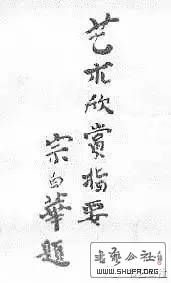 艺术欣赏指要
宗白华题
书艺公社
WWW.SHUFA.ORG